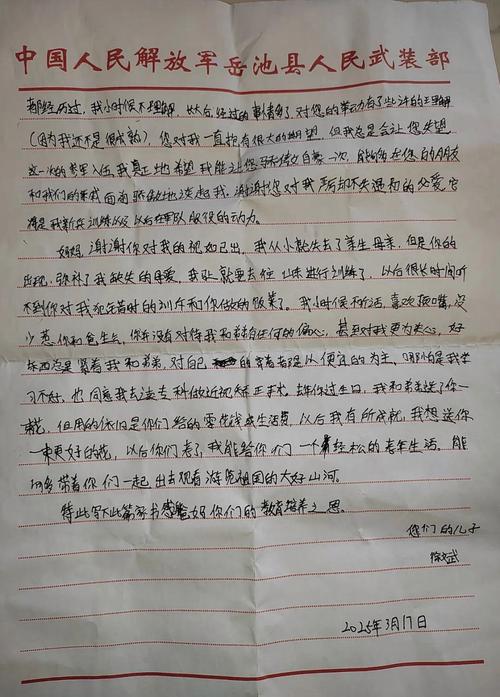 中国人民解放军岳池县人民武装部
都经历过，我小时候不理解，长大后经过的事情多了，对您的举动有了些许的理解
（因为我还不是很成熟），您对我一直抱有很大的期望，但我总是会让您失望
这一次的参军入伍我真正地希望我能让您骄傲自豪一次，能够在您的朋友
和我们的亲戚面前骄傲地谈起我，谢谢您对我严厉却不失温和的父爱，它
将是我新兵训练以及以后在部队服役的动力。
妈妈，谢谢你对我的视如己出，我从小就失去了亲生母亲，但是你的
出现，弥补了我缺失的母爱，我马上就要去往山东进行训练了，以后很长时间听
不到你对我犯错时的训斥和你做的饭菜了。我小时候不听话，喜欢顶嘴，没
少惹你和爸生气，你并没有对待我和弟弟有任何的偏心，甚至对我更为关心，好
东西总是紧着我和弟弟，对自己的穿着都是以便宜的为主，哪怕是我学
习不好，也同意我去读专科做近视矫正手术，去年你过生日，我和弟弟送了你一
束花，但用的依旧是你们给的零花钱或生活费，以后我有所成就，我想送你
一束更好的花，以后你们老了，我能给你们一个轻松的老年生活。能
够带着你们一起出去观看游览祖国的大好山河。
特此写下此篇家书感谢爸妈你们的教育培养之恩。
您们的儿子
徐文斌
2025年3月17日